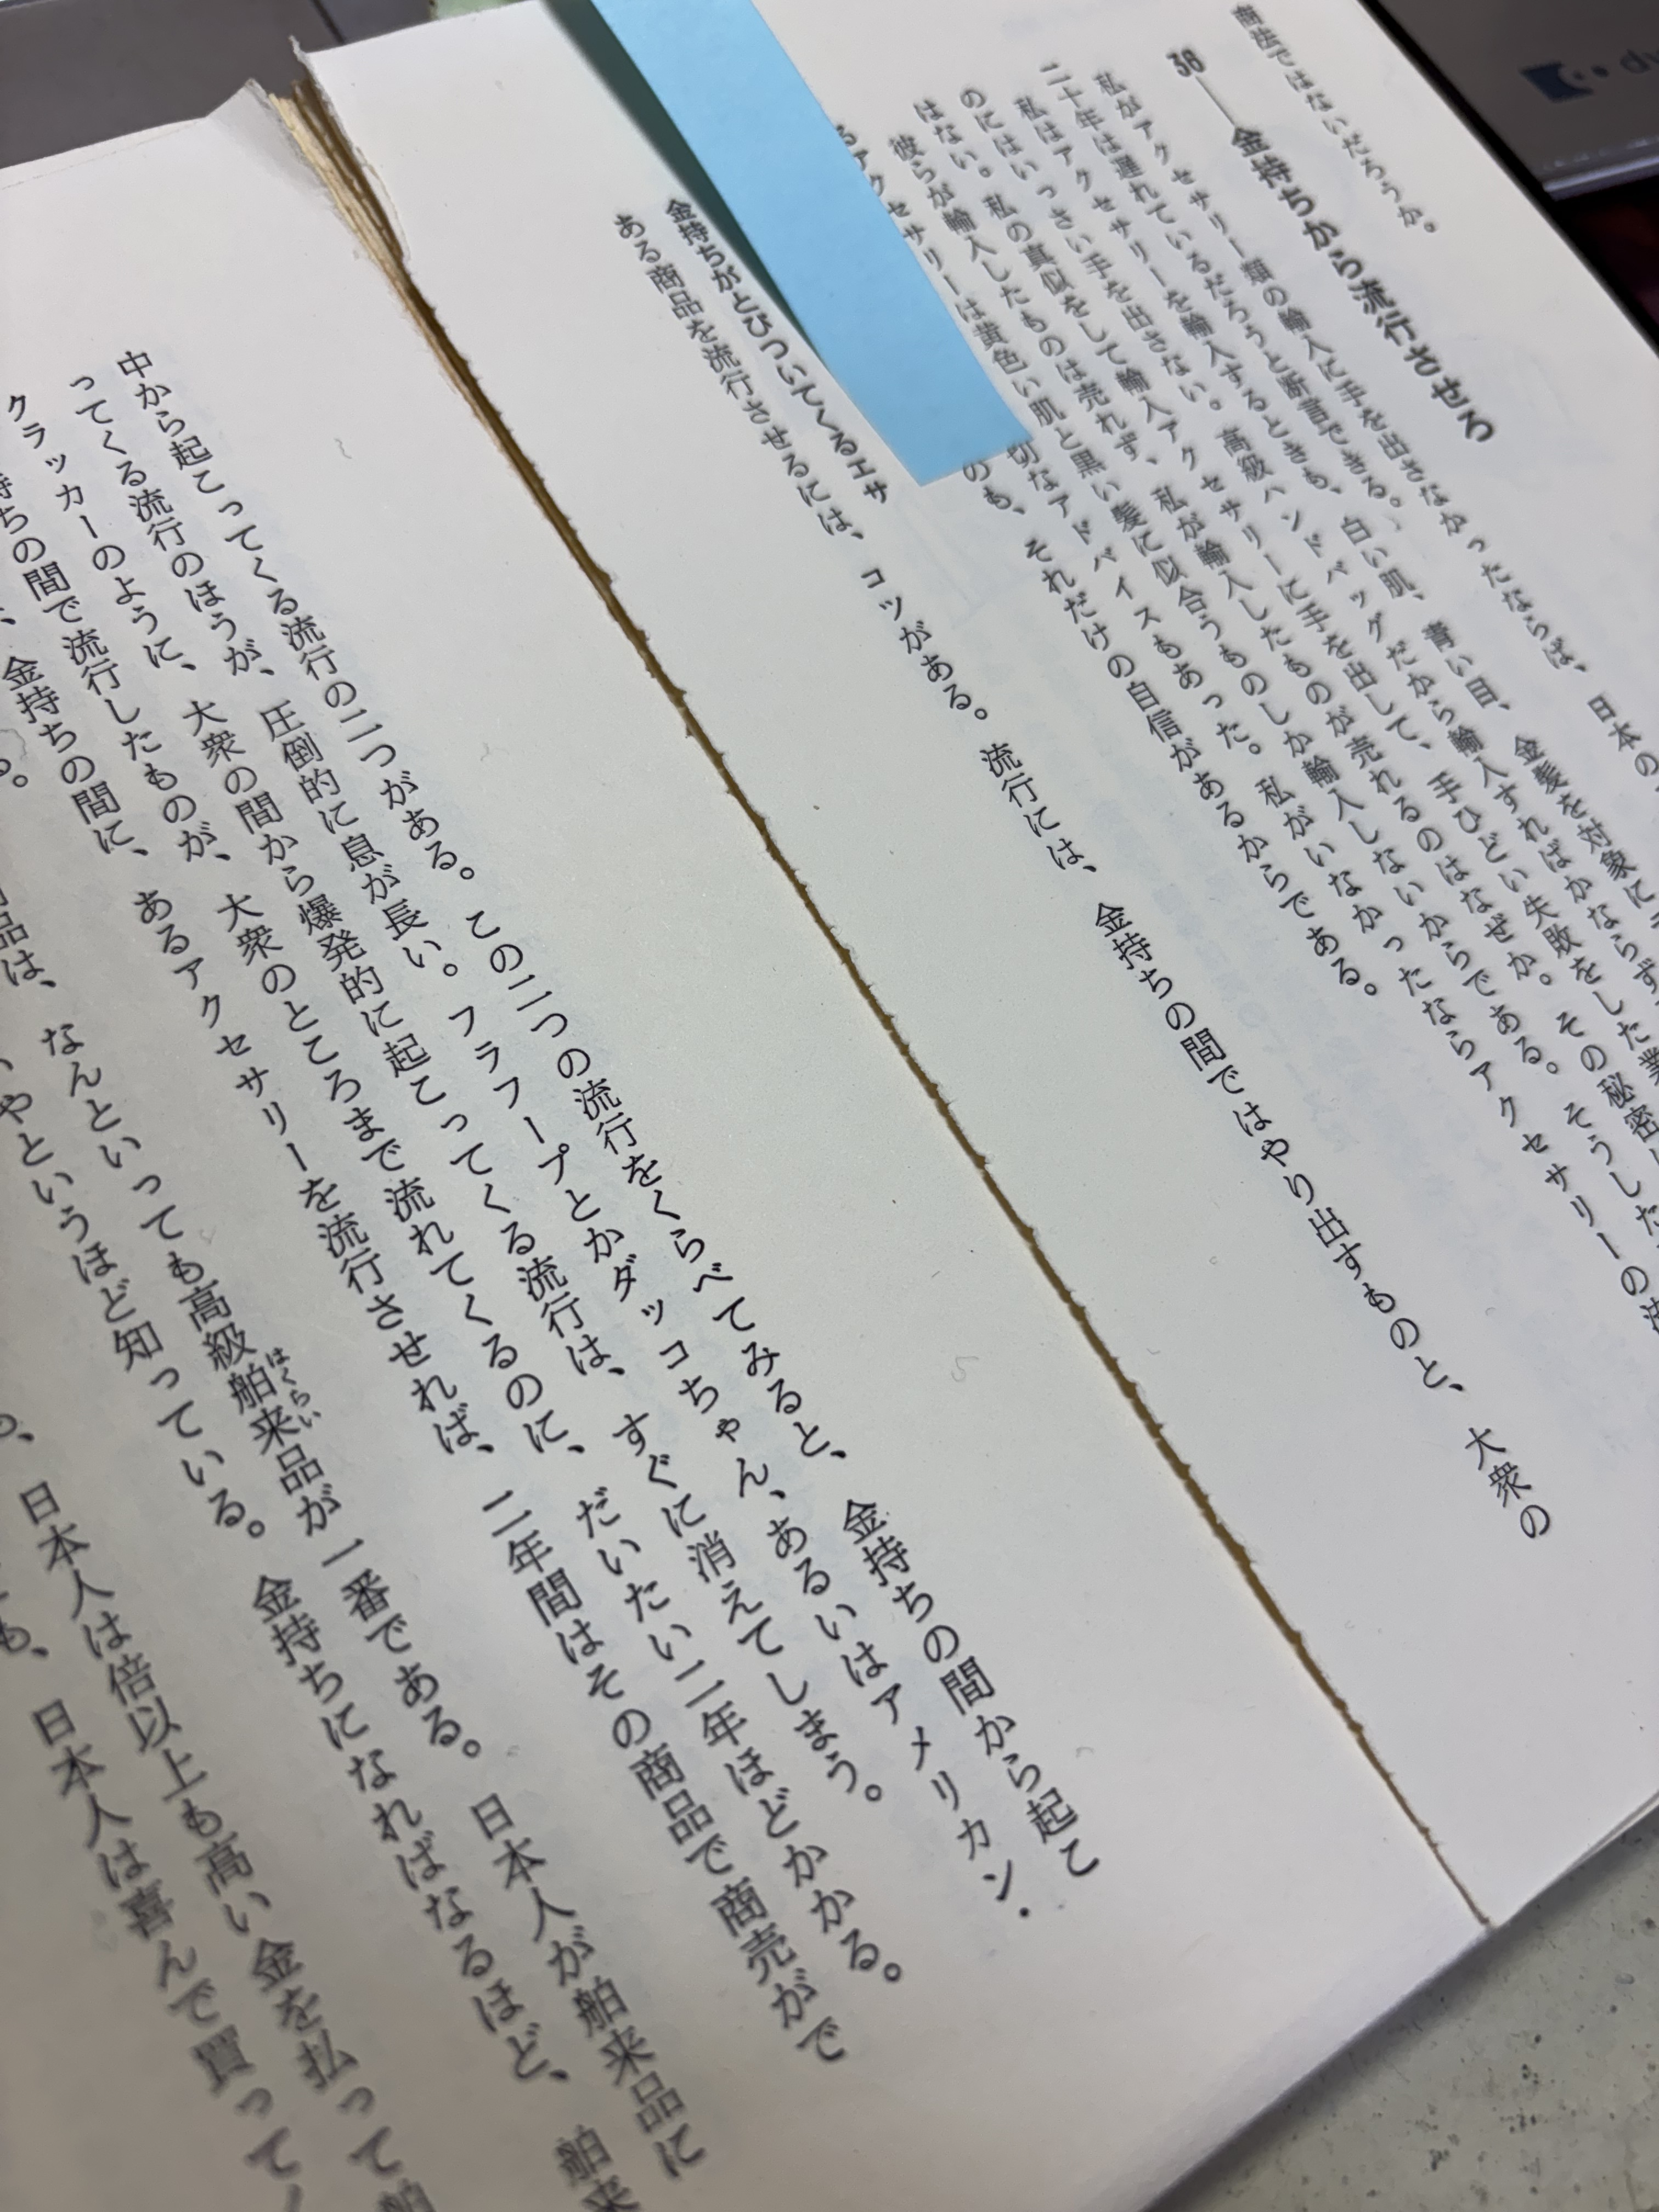 商法ではないだろうか。
38 金持ちから流行させろ
私がアクセサリー類の輸入に手を出さなかったならば、日本の
二十年は遅れているだろうと断言できる。
私はアクセサリーを輸入するときも、白い肌、青い目、金髪を対象に
のにはいっさい手を出さない。高級ハンドバッグだから輸入すればかならず
はない。私の真似をして輸入アクセサリーに手を出して、手ひどい失敗をした業
彼らが輸入したものは売れず、私が輸入したものが売れるのはなぜか。その秘密
るアクセサリーは黄色い肌と黒い髪に似合うものしか輸入しないからである。そうした
切なアドバイスもあった。私がいなかったならアクセサリーの
のも、それだけの自信があるからである。
金持ちがとびついてくるエサ
ある商品を流行させるには、コツがある。流行には、金持ちの間ではやり出すものと、大衆の
中から起こってくる流行の二つがある。この二つの流行をくらべてみると、金持ちの間から起こ
ってくる流行のほうが、圧倒的に息が長い。フラフープとかダッコちゃん、あるいはアメリカン・
クラッカーのように、大衆の間から爆発的に起こってくる流行は、すぐに消えてしまう。
持ちの間で流行したものが、大衆のところまで流れてくるのに、だいたい二年ほどかかる。
、金持ちの間に、あるアクセサリーを流行させれば、二年間はその商品で商売がで
る。
品は、なんといっても高級舶来品が一番である。日本人が舶来品に
はくらい
いやというほど知っている。金持ちになればなるほど、舶来
、日本人は倍以上も高い金を払って舶
も、日本人は喜んで買って